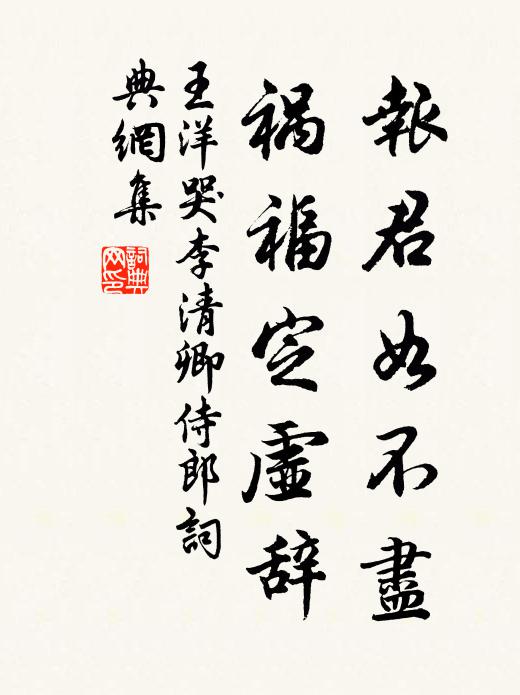 報君如不盡
禍福定虛辞
王洋哭李清卿侍郎詞
典網集
詞典
网印